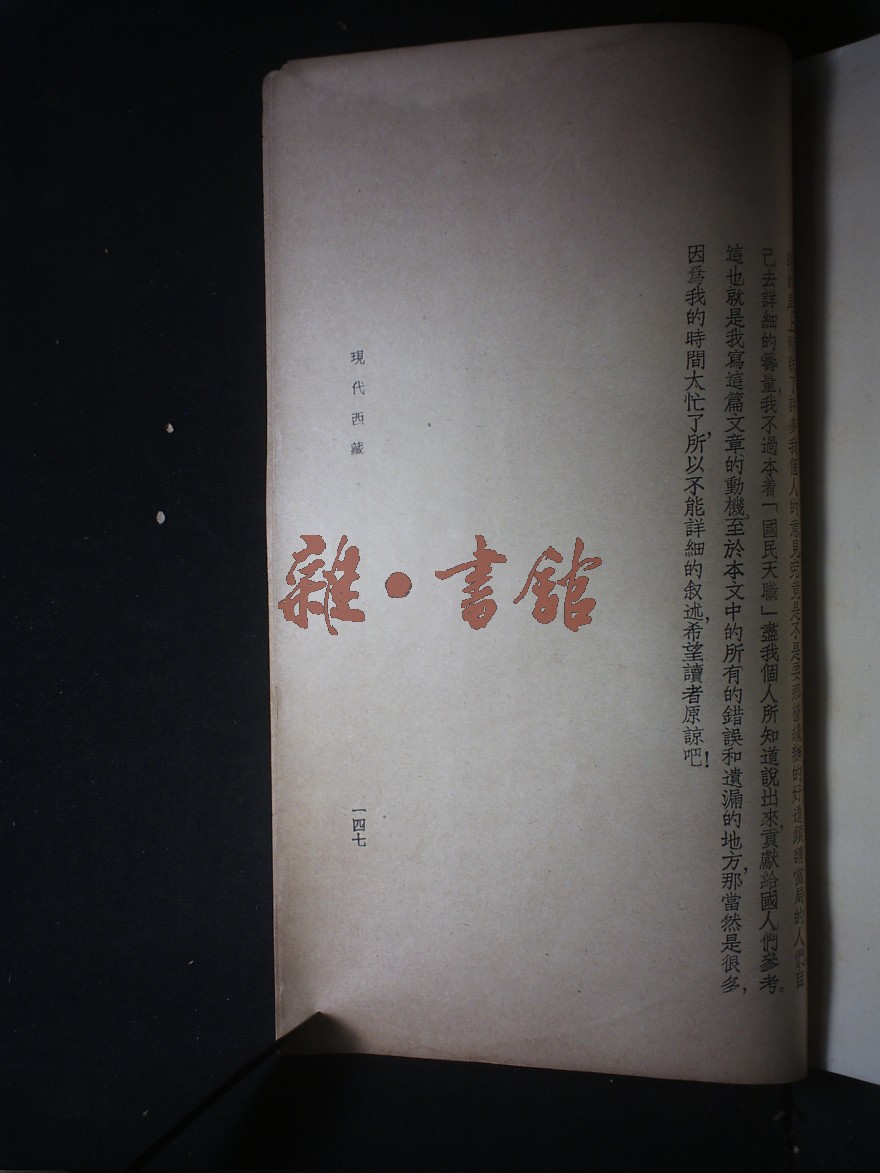 我個人的意見究竟是不是要
的好還須讓當局的人們自
己去詳細的衡量,我不過本着「國民天職」盡我個人所知道說出來,貢獻給國人們參考。
這也就是我寫這篇文章的動機。至於本文中的所有的錯誤和遺漏的地方,那當然是很多,
因爲我的時間太忙了,所以不能詳細的叙述,希望讀者原諒吧!
現代西藏
一四七
雜·書館